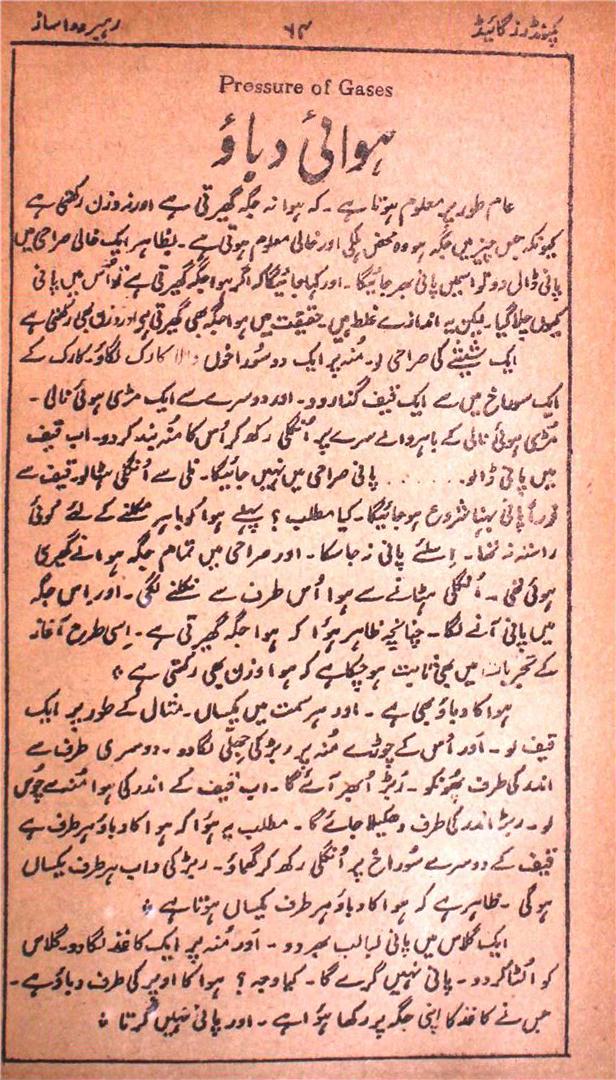 کمپونڈرز گائیڈ
۶۴
رہبر دوا ساز
Pressure of Gases
ہوائی دباؤ
عام طور پر معلوم ہوتا ہے۔ کہ ہوا نہ جگہ گھیرتی ہے اور نہ وزن رکھتی ہے
کیونکہ جس چیز میں جگہ ہو وہ محض ہلکی اور خالی معلوم ہوتی ہے۔ بظاہر ایک خالی صراحی میں
پانی ڈال دو تو اسمیں پانی بھر جائیگا۔ اور کہا جائیگا کہ اگر ہوا جگہ گھیرتی ہے تو اُس میں پانی
کیوں چلا گیا۔ لیکن یہ اندازے غلط ہیں۔ حقیقت میں ہوا جگہ بھی گھیرتی ہے اور وزن بھی رکھتی ہے
ایک شیشے کی صراحی لو۔ مُنہ پر ایک دو سُوراخوں والا کارک لگاؤ۔ کارک کے
ایک سوراخ میں سے ایک قیف گذار دو۔ اور دوسرے سے ایک مڑی ہوئی نالی۔
مُڑی ہوئی نالی کے باہر والے سرے پر اُنگلی رکھ کر اُس کا مُنہ بند کر دو۔ اب قیف
میں پانی ڈالو۔...... پانی صراحی میں نہیں جائیگا۔ نلی سے اُنگلی ہٹا لو۔ قیف سے
فوراً پانی بہنا شروع ہو جائیگا۔ کیا مطلب؟ پہلے ہوا کو باہر نکلنے کے لئے کوئی
راستہ نہ تھا۔ اِسلئے پانی نہ جا سکا۔ اور صراحی میں تمام جگہ ہوا نے گھیری
ہوئی تھی۔ اُنگلی ہٹانے سے ہوا اُس طرف سے نکلنے لگی۔ اور اس جگہ
میں پانی آنے لگا۔ چنانچہ ظاہر ہوُا کہ ہوا جگہ گھیرتی ہے۔ اِسی طرح آغاز
کے تجربات میں بھی ثابت ہو چکا ہے کہ ہوا وزن بھی رکھتی ہے ۞
ہوا کا دباؤ بھی ہے۔ اور ہر سمت میں یکساں۔ مثال کے طور پر ایک
قیف لو۔ اَور اُس کے چوڑے مُنہ پر ربڑ کی جھلّی لگا دو۔ دوسری طرف سے
اندر کی طرف پھُونکو۔ رَبڑ اُبھر آئے گا۔ اب قیف کے اندر کی ہوا مُنہ سے چُوس
لو۔ ربڑ اندر کی طرف دھکیلا جائے گا۔ مطلب یہ ہوُا کہ ہوا کا دباؤ ہر طرف ہے
قیف کے دوسرے سُوراخ پر اُنگلی رکھ کر گھماؤ۔ ربڑ کی داب ہر طرف یکساں
ہوگی۔ ظاہر ہے کہ ہوا کا دباؤ ہر طرف یکساں ہوتا ہے ۞
ایک گلاس میں پانی لبالب بھر دو۔ اَور مُنہ پر ایک کاغذ لگا دو۔ گلاس
کو اُلٹا کر دو۔ پانی نہیں گرے گا۔ کیا وجہ؟ ہوا کا اوپر کی طرف دباؤ ہے۔
جس نے کاغذ کا اپنی جگہ پر رکھا ہوُا ہے۔ اور پانی نہیں گرتا ۞